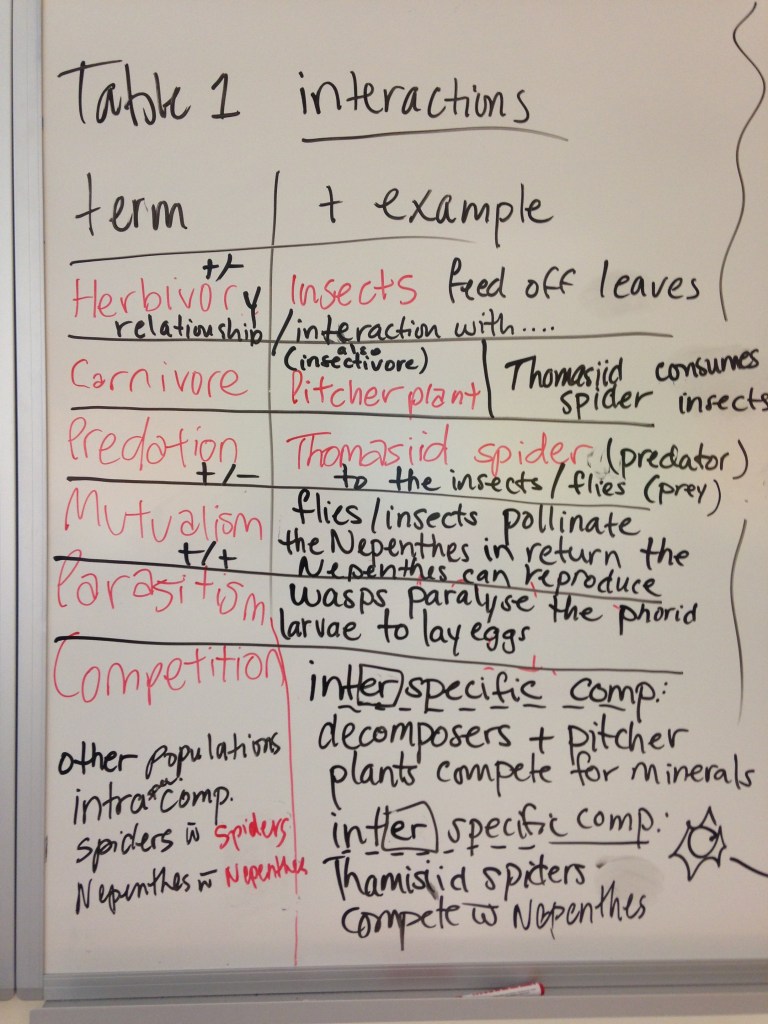 Table 1 interactions
term + example
+/-
Herbivory Insects feed off leaves
relationship / interaction with....
also
(insectivore)
Carnivore Pitcher plant Thomasiid consumes
spider insects
Predation Thomasiid spider (predator)
+/- to the insects/flies (prey)
Mutualism flies/insects pollinate
+/+ the Nepenthes in return the
Nepenthes can reproduce
Parasitism wasps paralyse the phorid
larvae to lay eggs
Competition interspecific comp.:
decomposers + pitcher
plants compete for minerals
other populations
intra comp.
spiders w spiders
Nepenthes w Nepenthes
interspecific comp.:
Thamisiid spiders
compete w Nepenthes